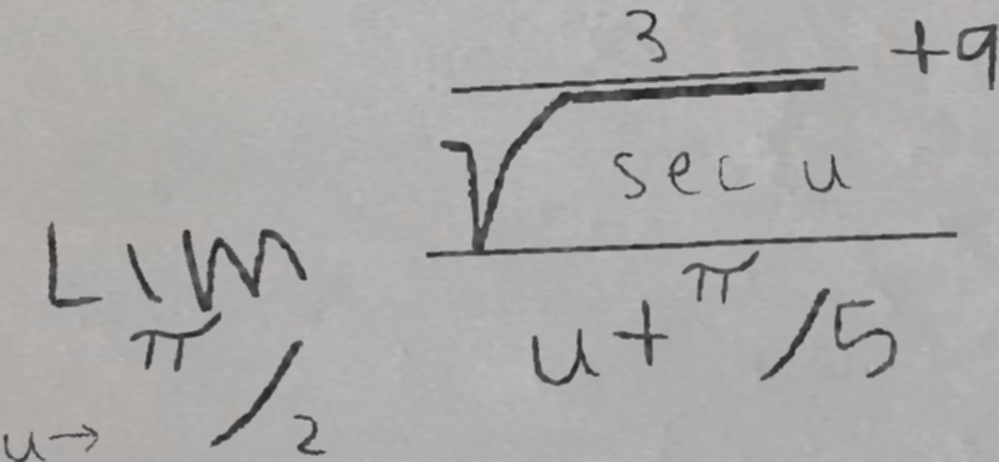 Lim u→ π/2 \frac{\frac{3}{\sqrt{sec u}} +9}{u+ π/5}